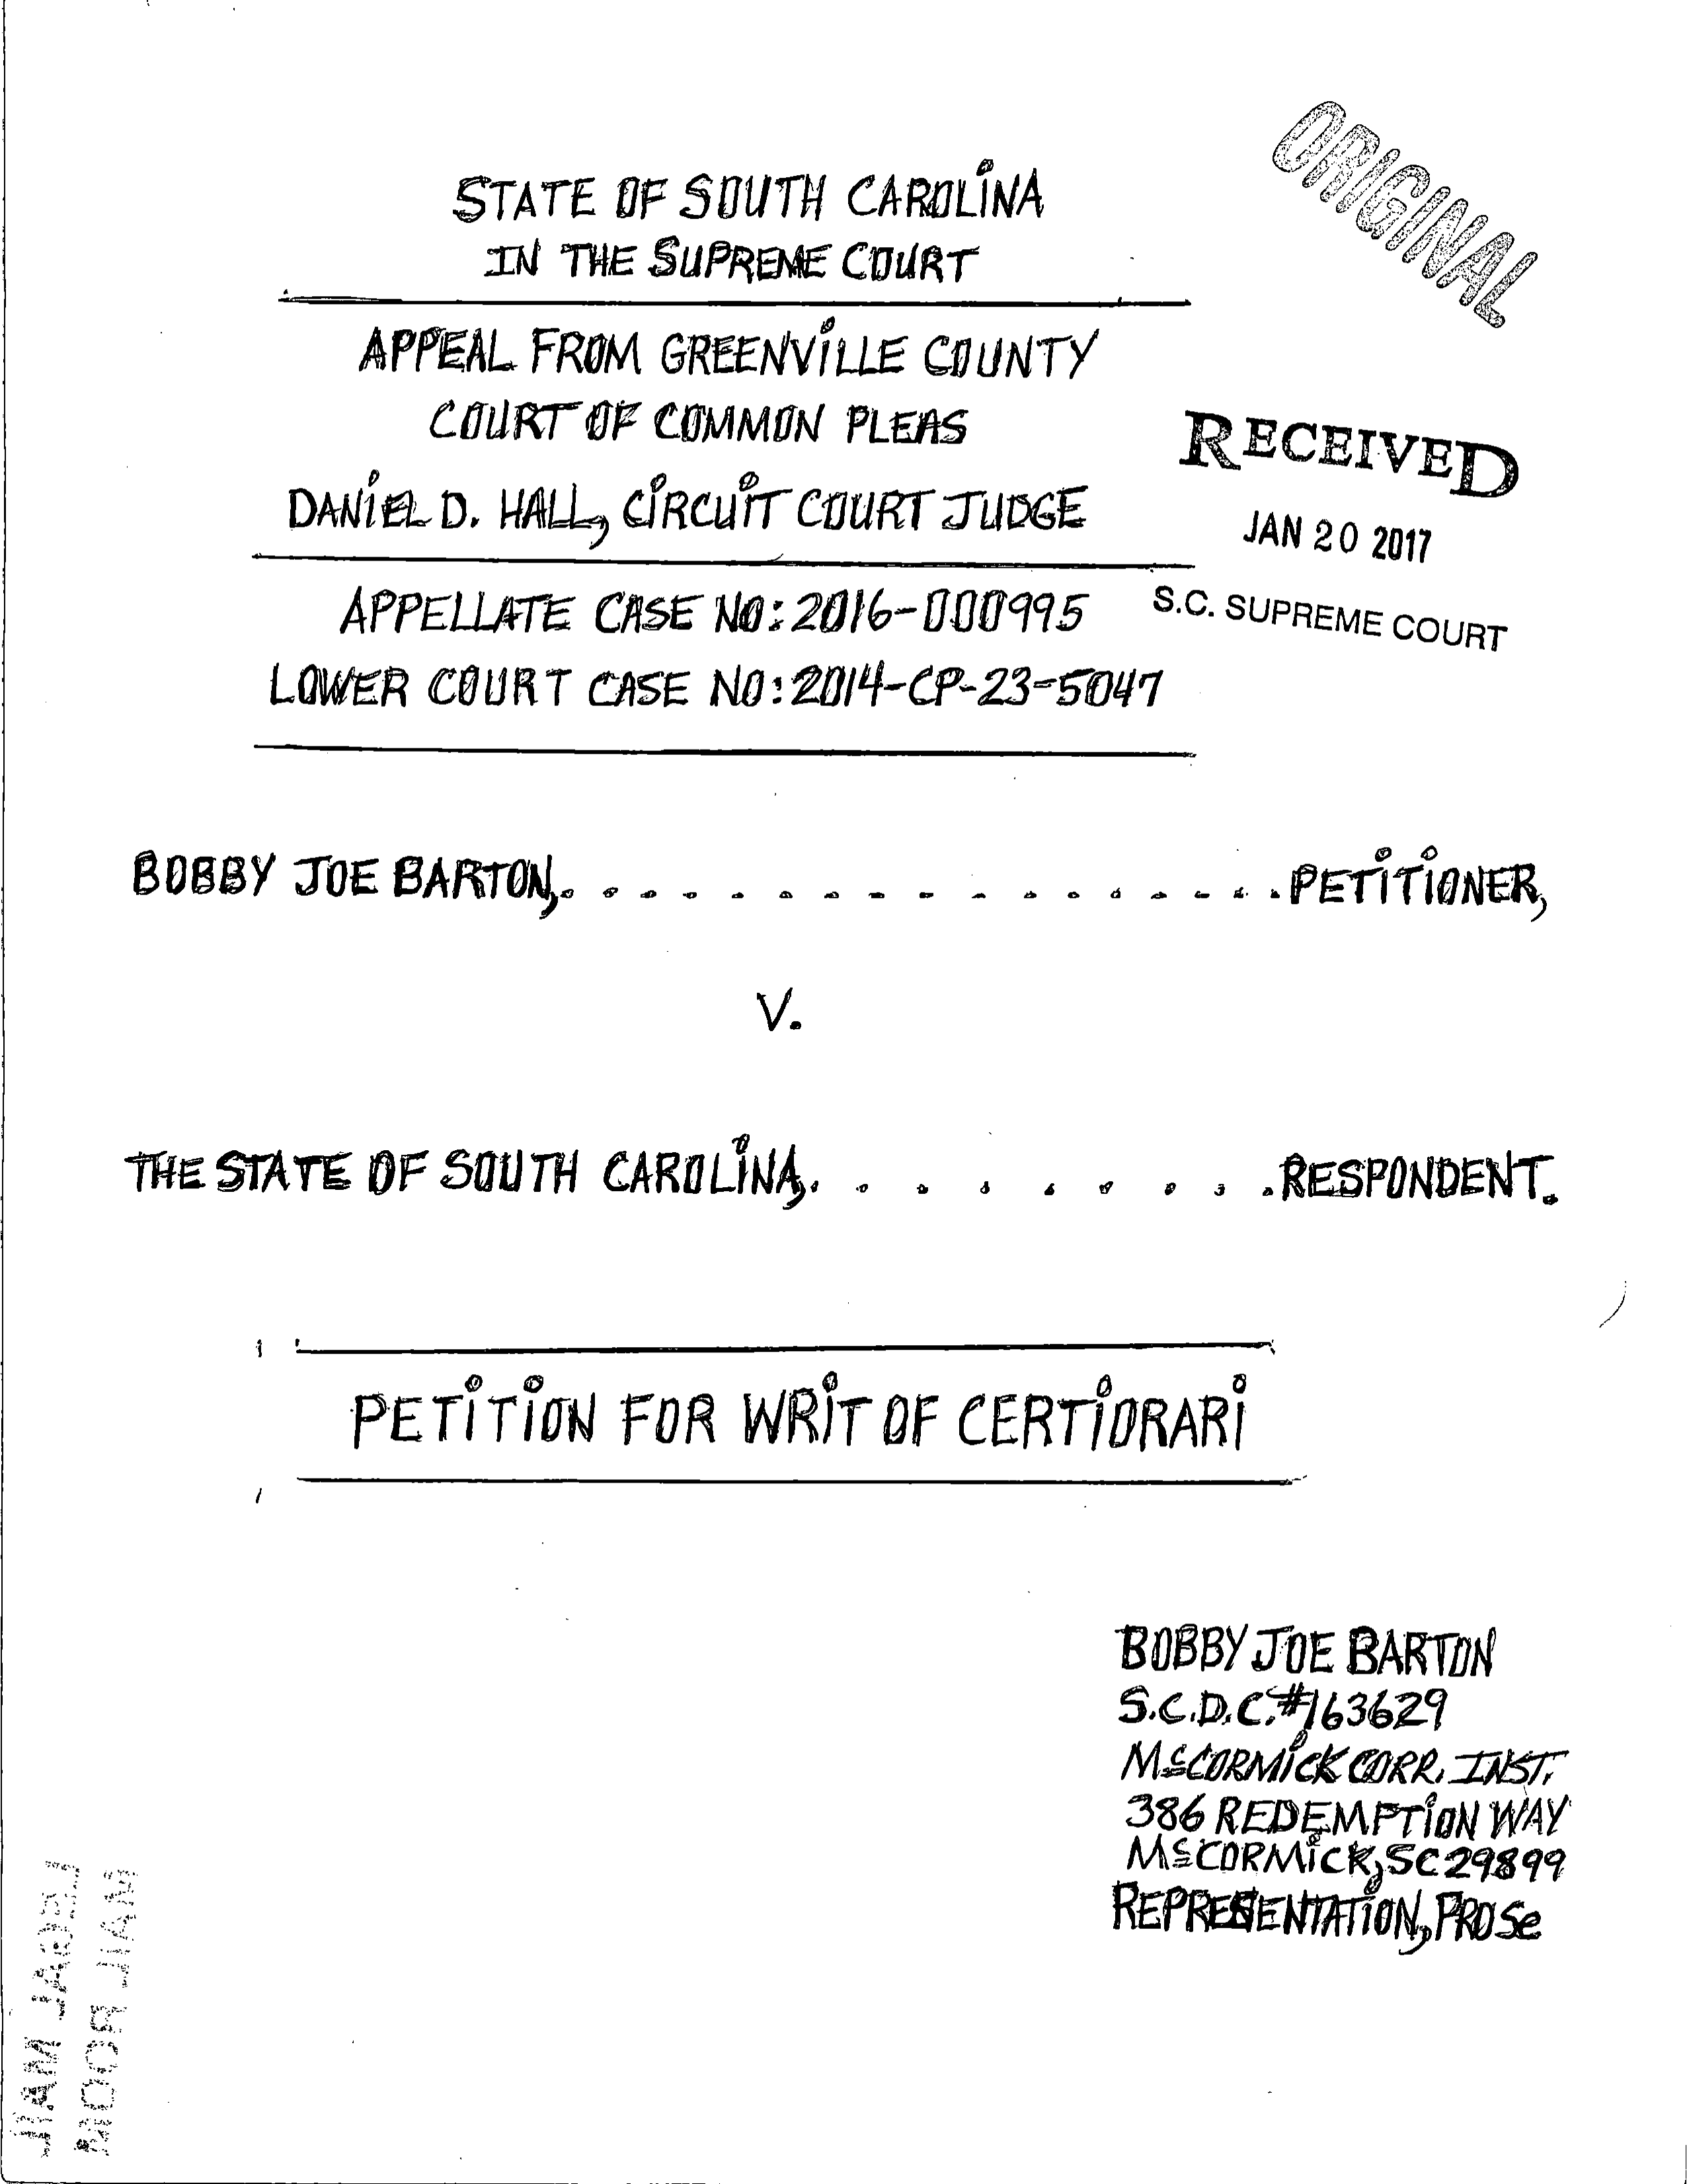 ORIGINAL
STATE OF SOUTH CAROLINA
IN THE SUPREME COURT
APPEAL FROM GREENVILLE COUNTY
COURT OF COMMON PLEAS
RECEIVED
DANIEL D. HALL, CIRCUIT COURT JUDGE
JAN 20 2017
APPELLATE CASE NO: 2016-000995
S.C. SUPREME COURT
LOWER COURT CASE NO: 2014-CP-23-5047
BOBBY JOE BARTON, . . . . . . . . . . . . . . . . . . PETITIONER,
V.
THE STATE OF SOUTH CAROLINA, . . . . . . . . . RESPONDENT.
PETITION FOR WRIT OF CERTIORARI
BOBBY JOE BARTON
S.C.D.C.#163629
McCORMICK CORR. INST.
386 REDEMPTION WAY
McCORMICK, SC 29899
REPRESENTATION, PRO Se
LEGAL MAIL
MAIL ROOM